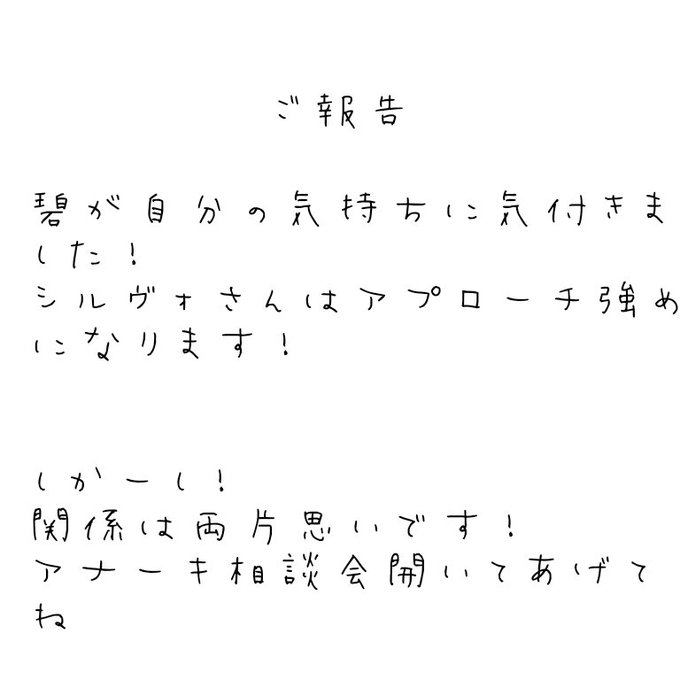 ご報告
碧が自分の気持ちに気付きま
した!
シルヴォさんはアプローチ強め
になります!
しかーし!
関係は両片思いです!
アナーキ相談会開いてあげて
ね